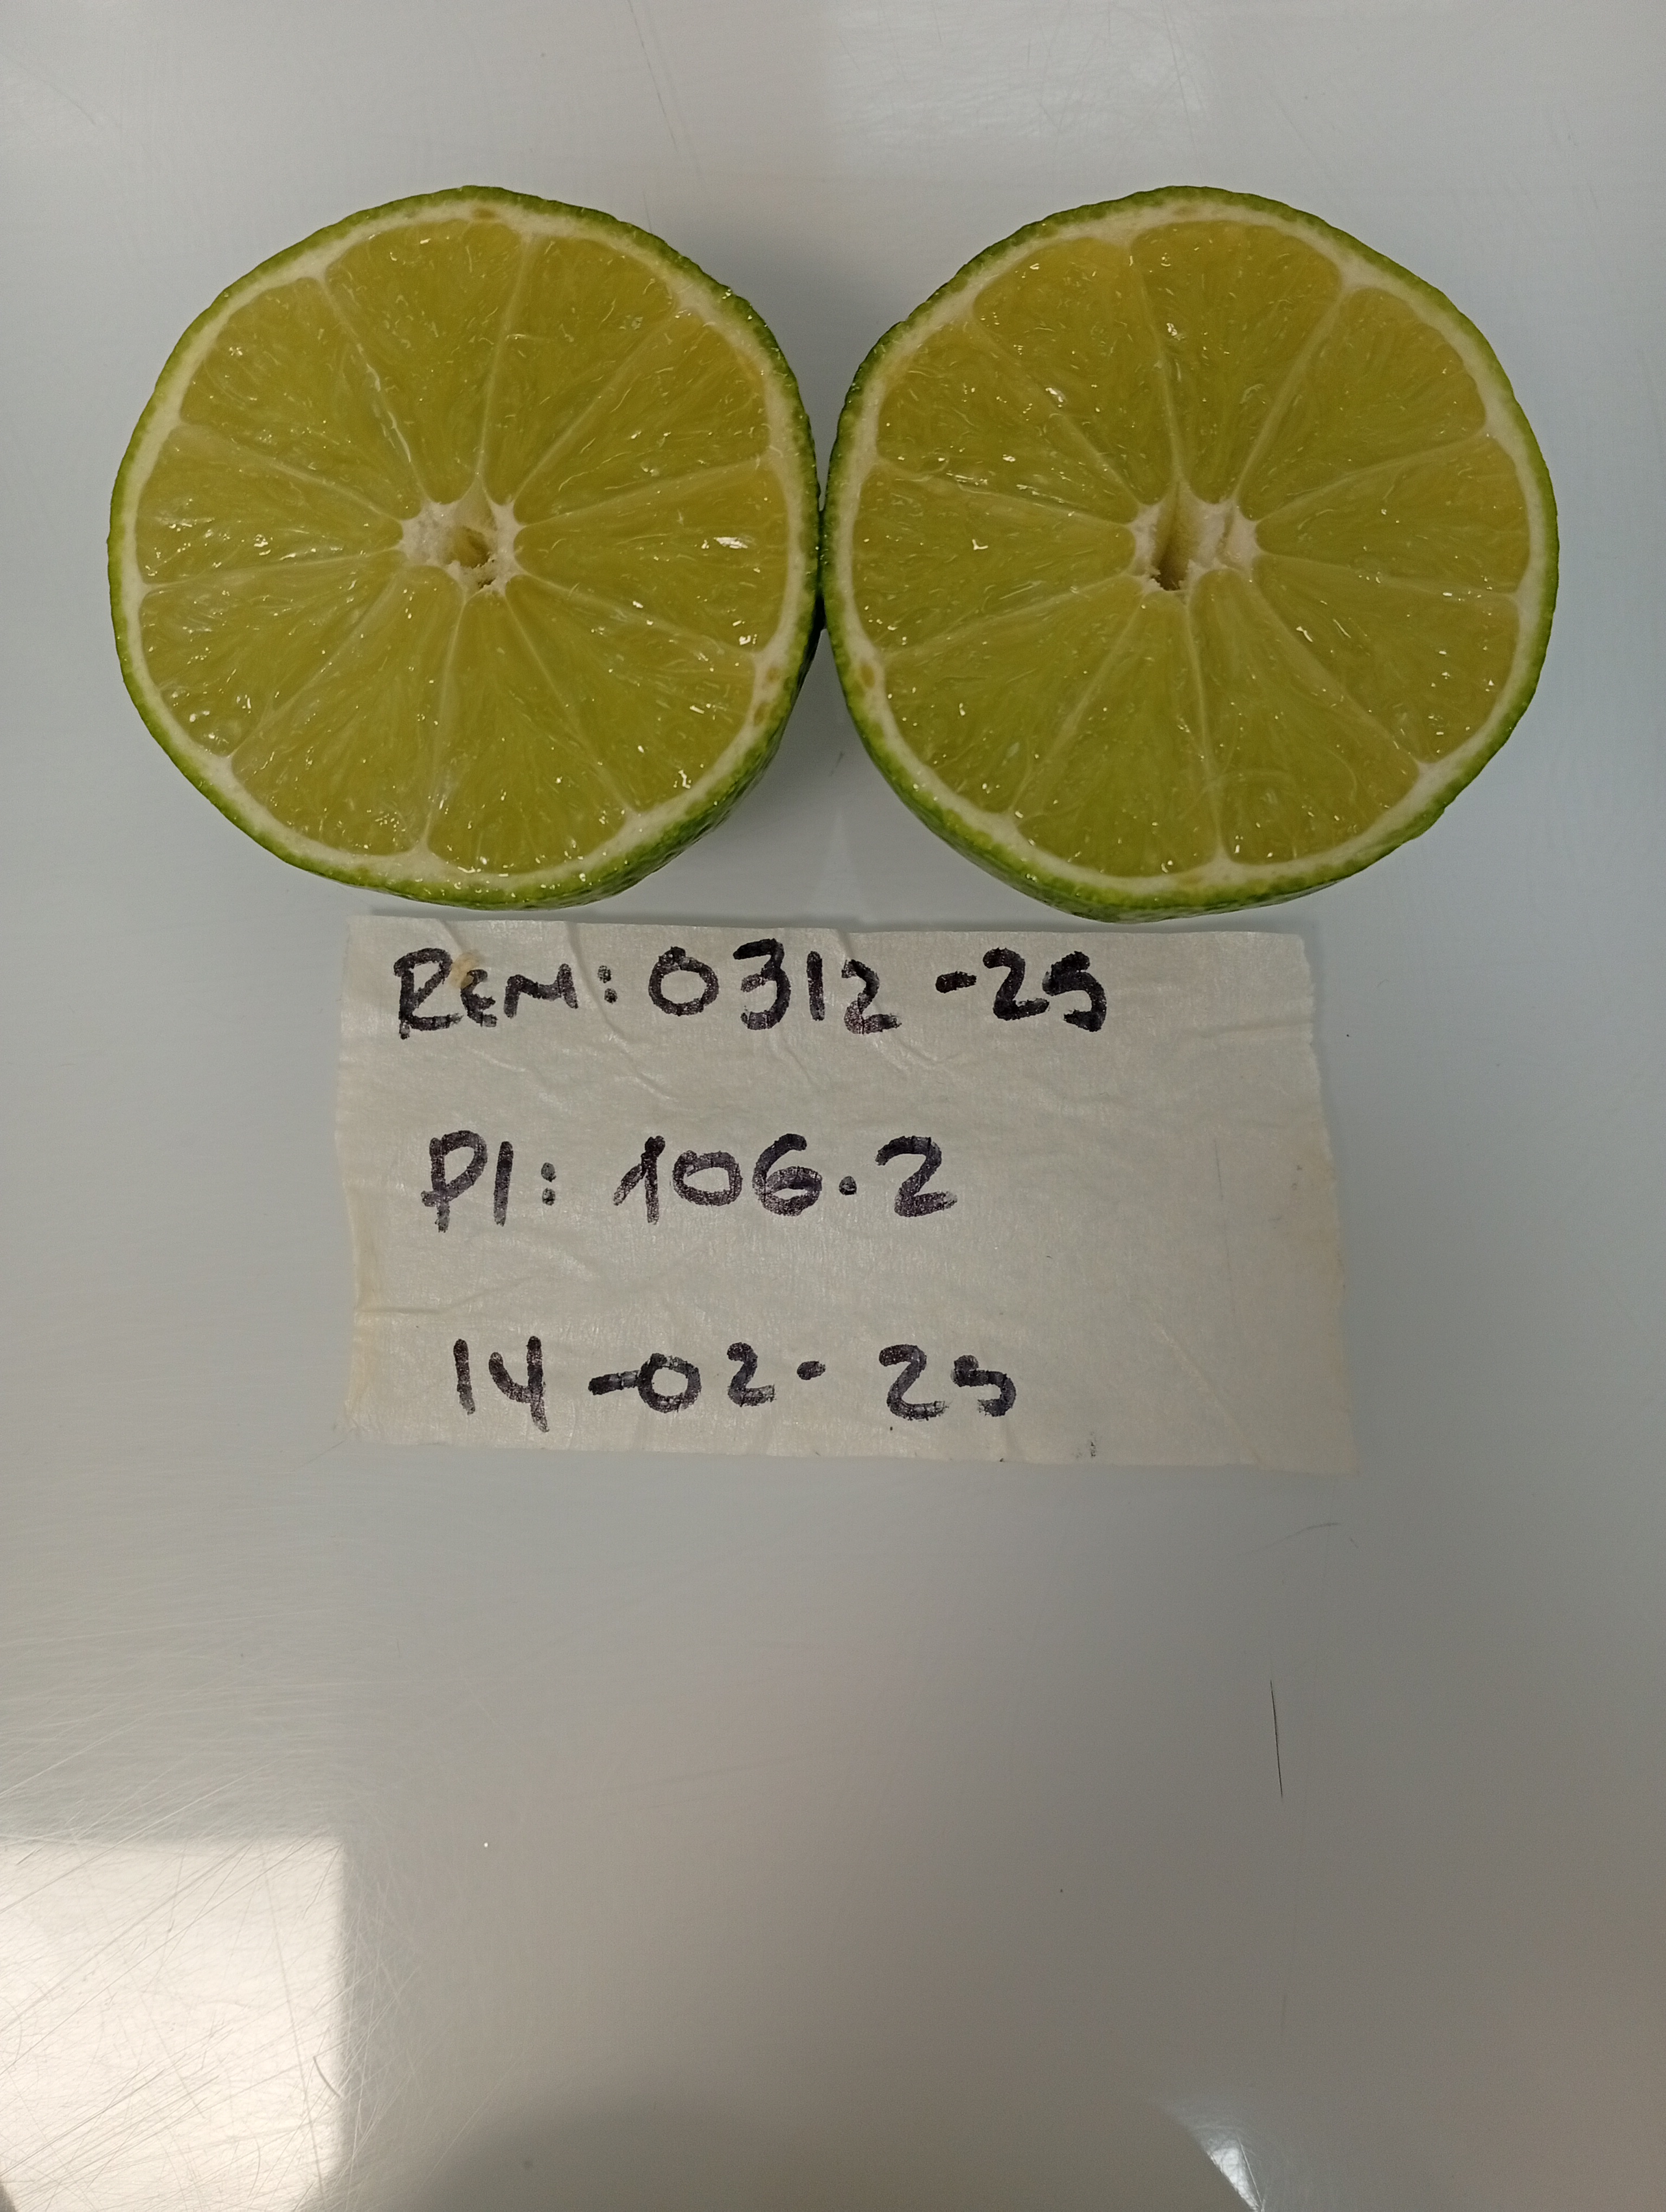 REM: 0312-25
PI: 106.2
14-02-25